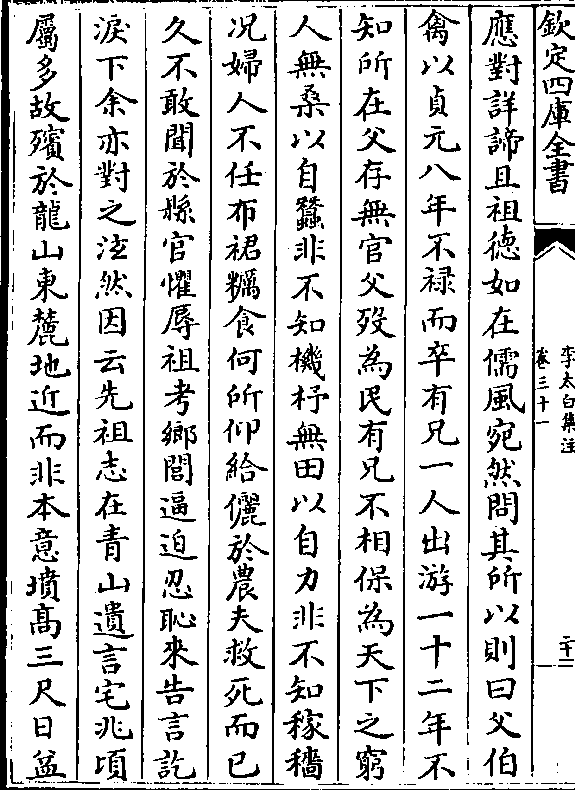 欽定四庫全書
李太白集注
卷三十一
二十二
應對詳諦且祖德如在儒風宛然問其所以則曰父伯
禽以貞元八年不禄而卒有兄一人出游一十二年不
知所在父存無官父歿為民有兄不相保為天下之窮
人無桑以自蠶非不知機杼無田以自力非不知稼穡
况婦人不任布裙糲食何所仰給儷於農夫救死而已
久不敢聞於縣官懼辱祖考鄉閭逼迫忍恥來告言訖
淚下余亦對之泫然因云先祖志在青山遺言宅兆頃
屬多故殯於龍山東麓地近而非本意墳高三尺日益